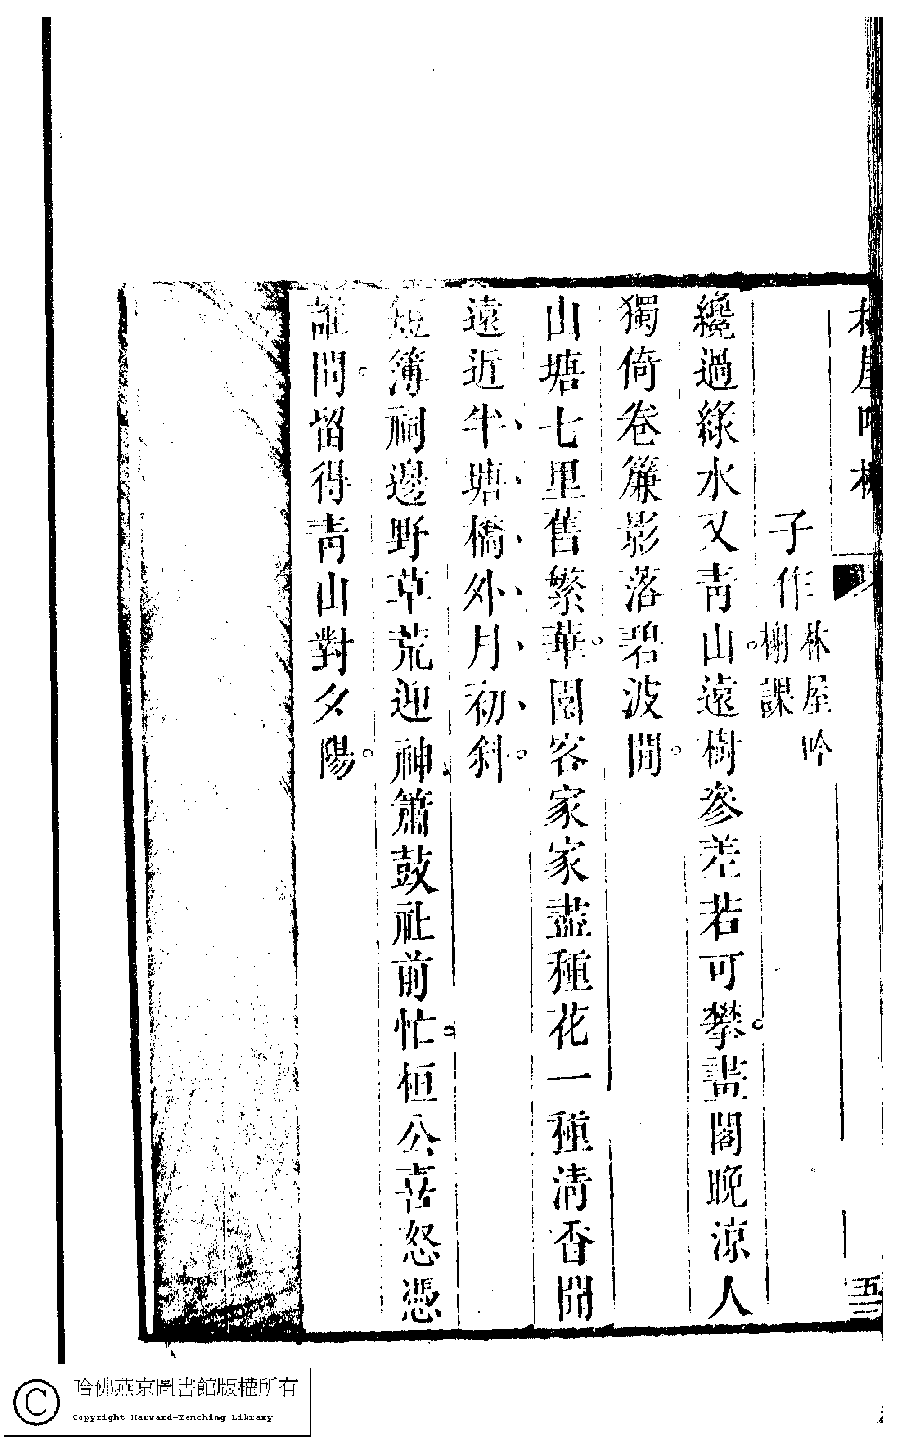 林屋吟榭
五三
子作林屋吟榭課
纔過綠水又靑山遠樹參差若可攀畫閣晚涼人
獨倚卷簾影落碧波間
山塘七里舊繁華園客家家盡種花一種淸香聞
遠近半塘橋外月初斜
短簿祠邊野草荒迎神簫鼓社前忙桓公喜怒憑
誰問留得靑山對夕陽
哈佛燕京圖書館版權所有
Copyright Harvard-Yenching Library